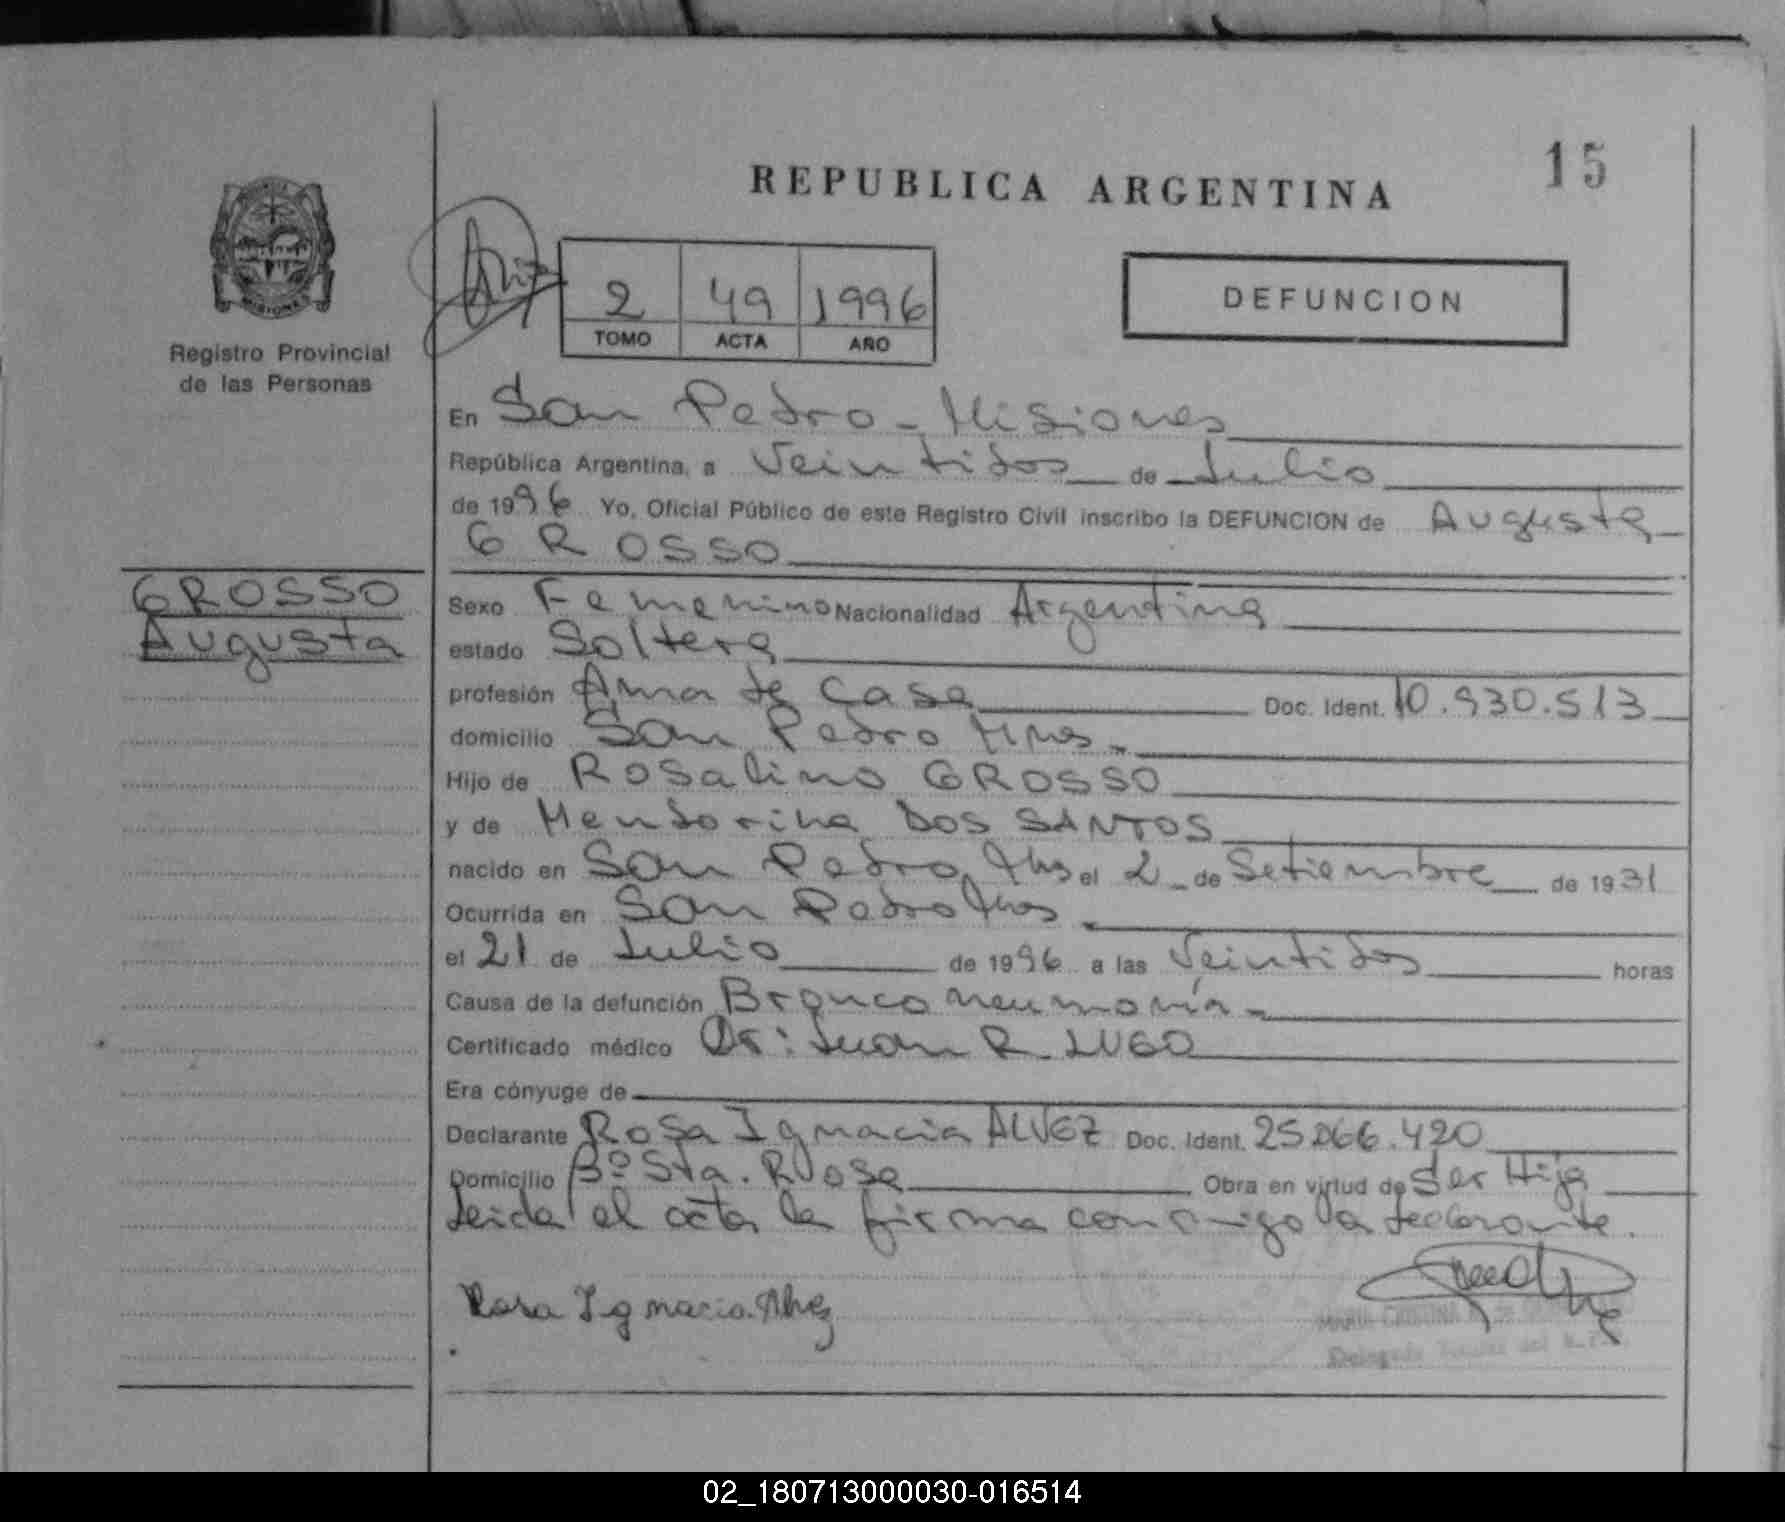 15
REPUBLICA ARGENTINA
MISIONES
Registro Provincial
de las Personas
2 49 1996
TOMO ACTA AÑO
DEFUNCION
En San Pedro - Misiones
República Argentina, a Veintidos de Julio
de 1996 Yo, Oficial Público de este Registro Civil inscribo la DEFUNCION de Augusta
GROSSO
GROSSO
Augusta
Sexo Femenino Nacionalidad Argentina
estado Soltera
profesión Ama de Casa Doc. Ident. 10.930.513
domicilio San Pedro Mnes.
Hijo de Rosalino GROSSO
y de Mendorina DOS SANTOS
nacido en San Pedro Mns el 2 de Setiembre de 1931
Ocurrida en San Pedro Mnes
el 21 de Julio de 1996 a las Veintidos horas
Causa de la defunción Bronconeumonía
Certificado médico Dr: Juan R. LUGO
Era cónyuge de
Declarante Rosa Ignacia ALVEZ Doc. Ident. 25.066.420
Domicilio Bº Sta. Rosa Obra en virtud de Ser Hija
Leida el acta la firma conmigo la declarante.
Rosa Ignacia Alvez
MARIA CRISTINA
02_180713000030-016514